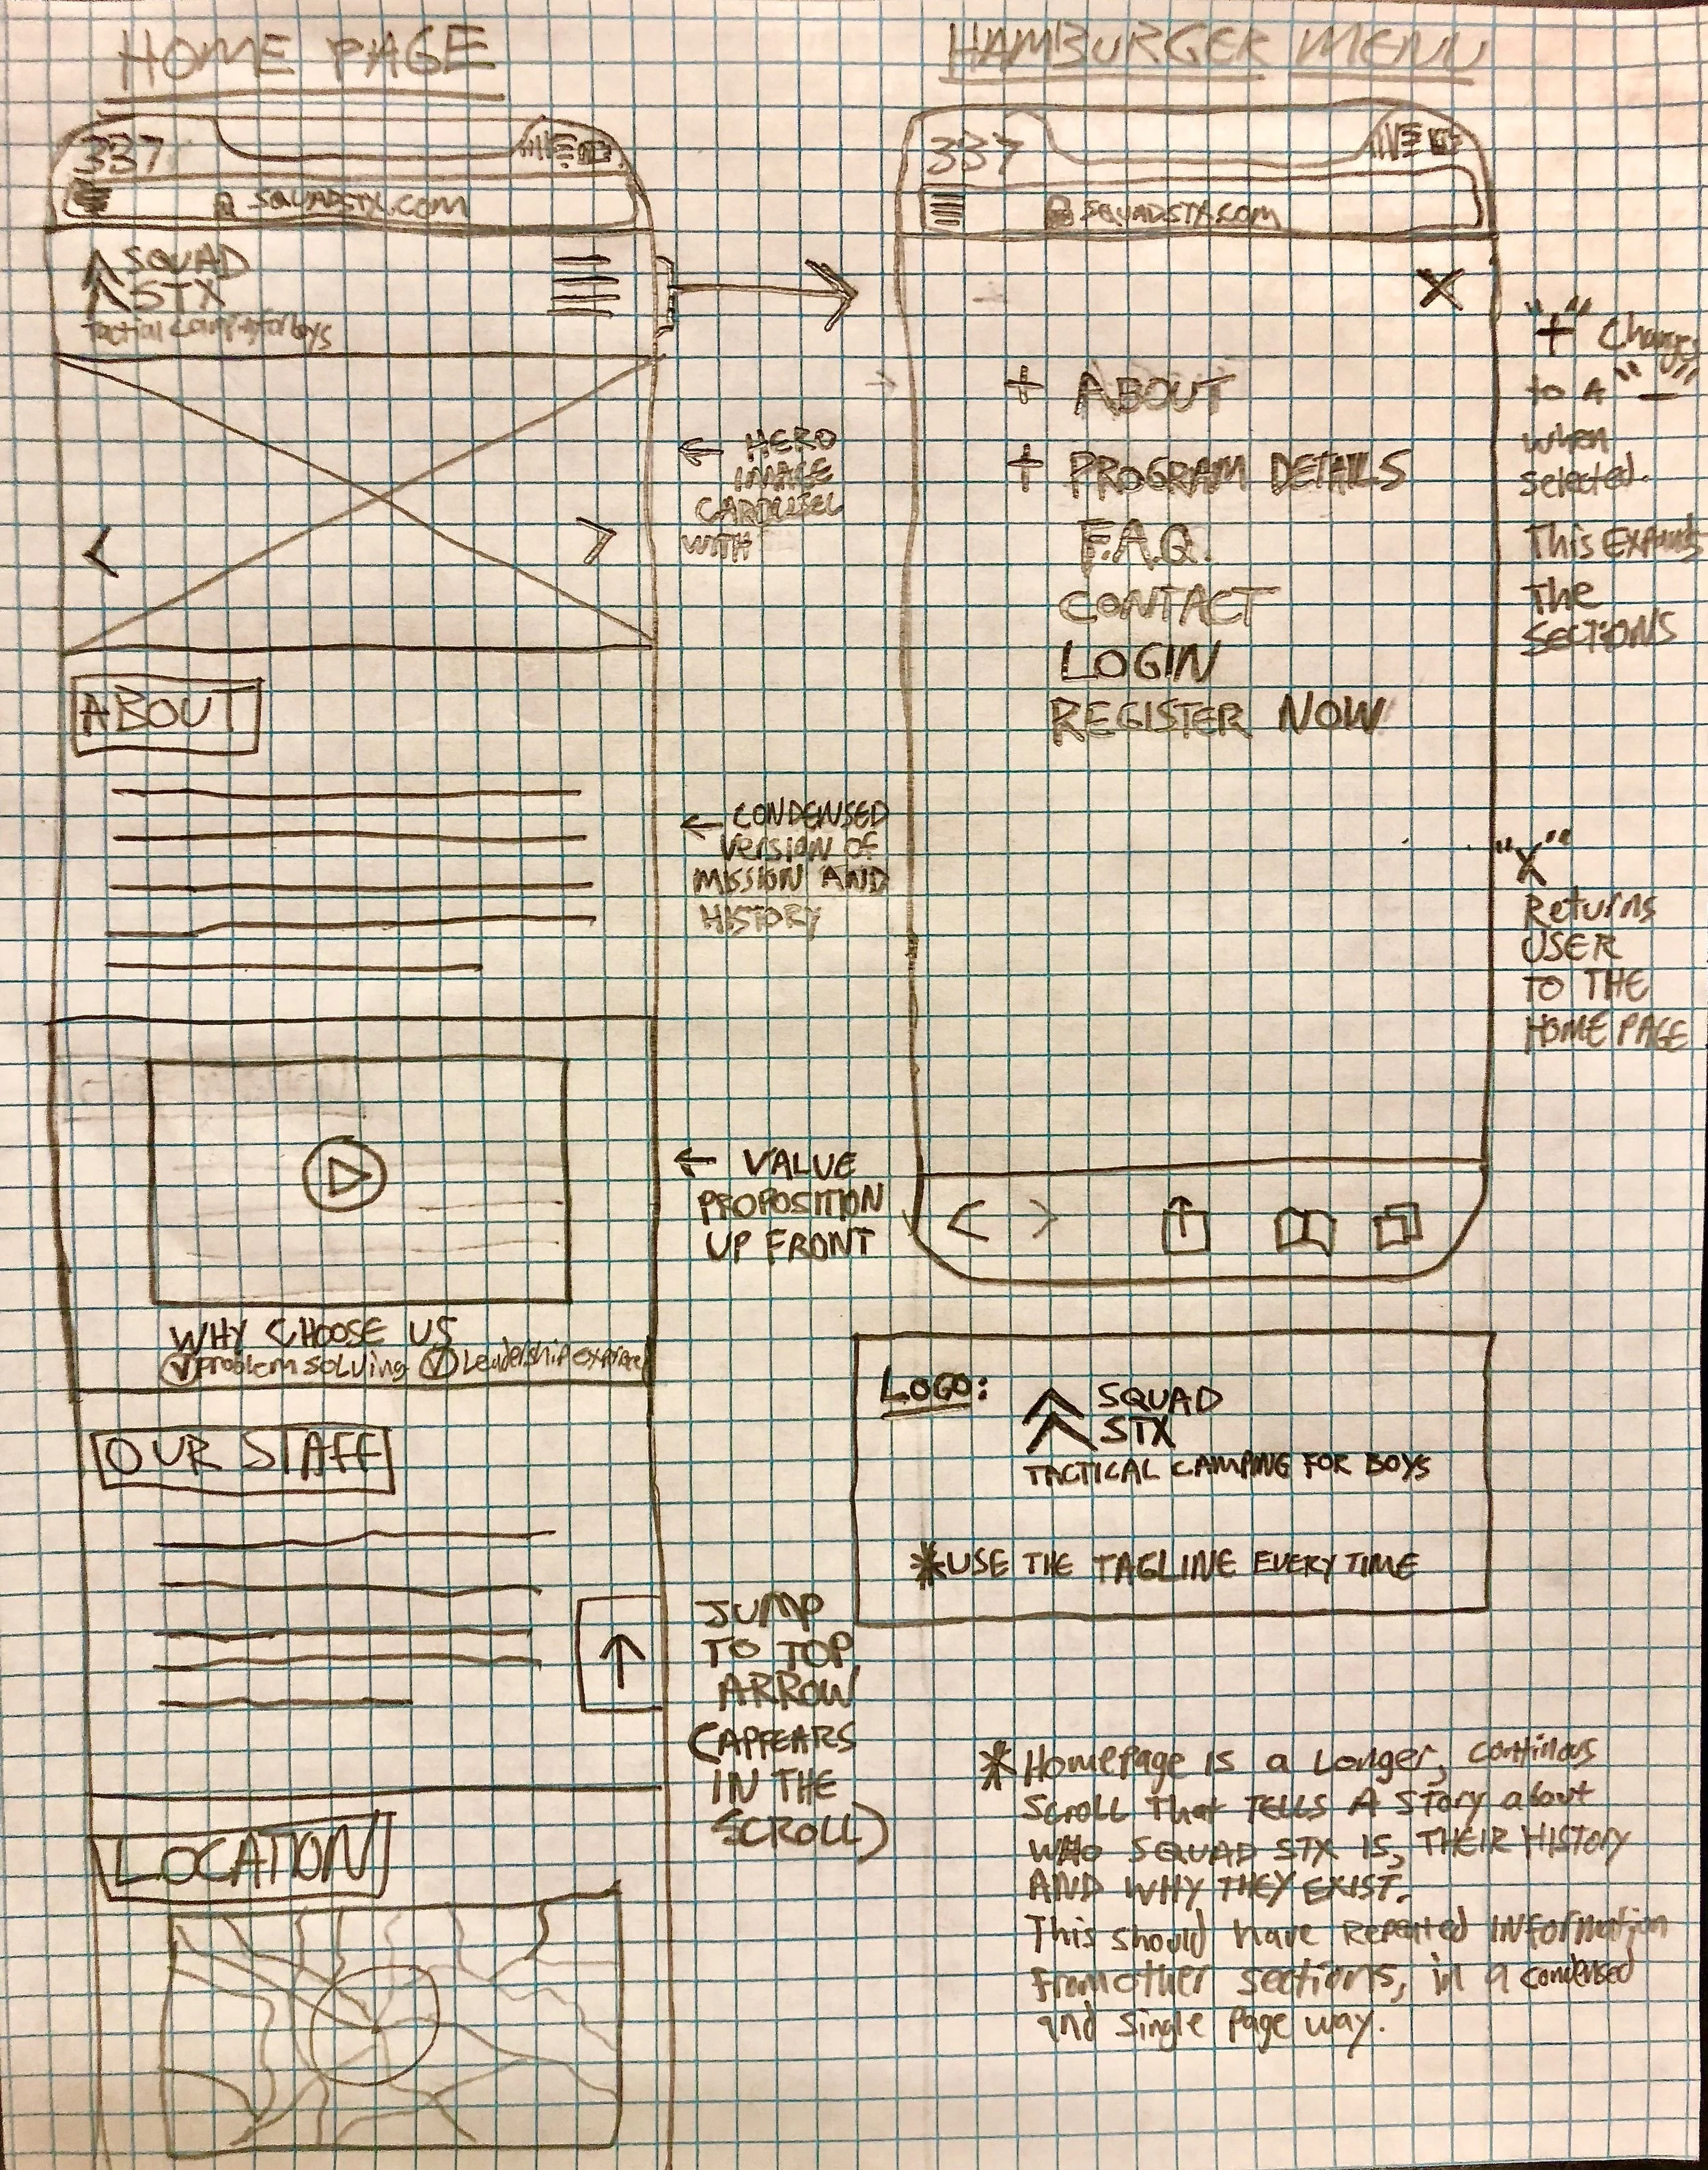 HOME PAGE
337
SQUADSTX.COM
SQUAD
STX
← HERO
IMAGE
CAROUSEL
WITH
< >
ABOUT
← CONDENSED
Version of
MISSION AND
HISTORY
← VALUE
PROPOSITION
UP FRONT
WHY CHOOSE US
problem solving Leadership
OUR STAFF
JUMP
TO TOP
ARROW
(APPEARS
IN THE
SCROLL)
LOCATION
HAMBURGER MENU
337
SQUADSTX.COM
X
+ ABOUT
+ PROGRAM DETAILS
F.A.Q.
CONTACT
LOGIN
REGISTER NOW
"+" Changes
to a "-"
when
selected.
This Expands
The
SECTIONS
"X"
Returns
USER
TO THE
HOME PAGE
LOGO:
SQUAD
STX
TACTICAL CAMPING FOR BOYS
*USE THE TAGLINE EVERY TIME
* Homepage is a Longer, continous
Scroll that TELLS A Story about
WHO SQUAD STX IS, THEIR HISTORY
AND WHY THEY EXIST.
This should have Repeated INformation
from other sections, in a condensed
and single page way.